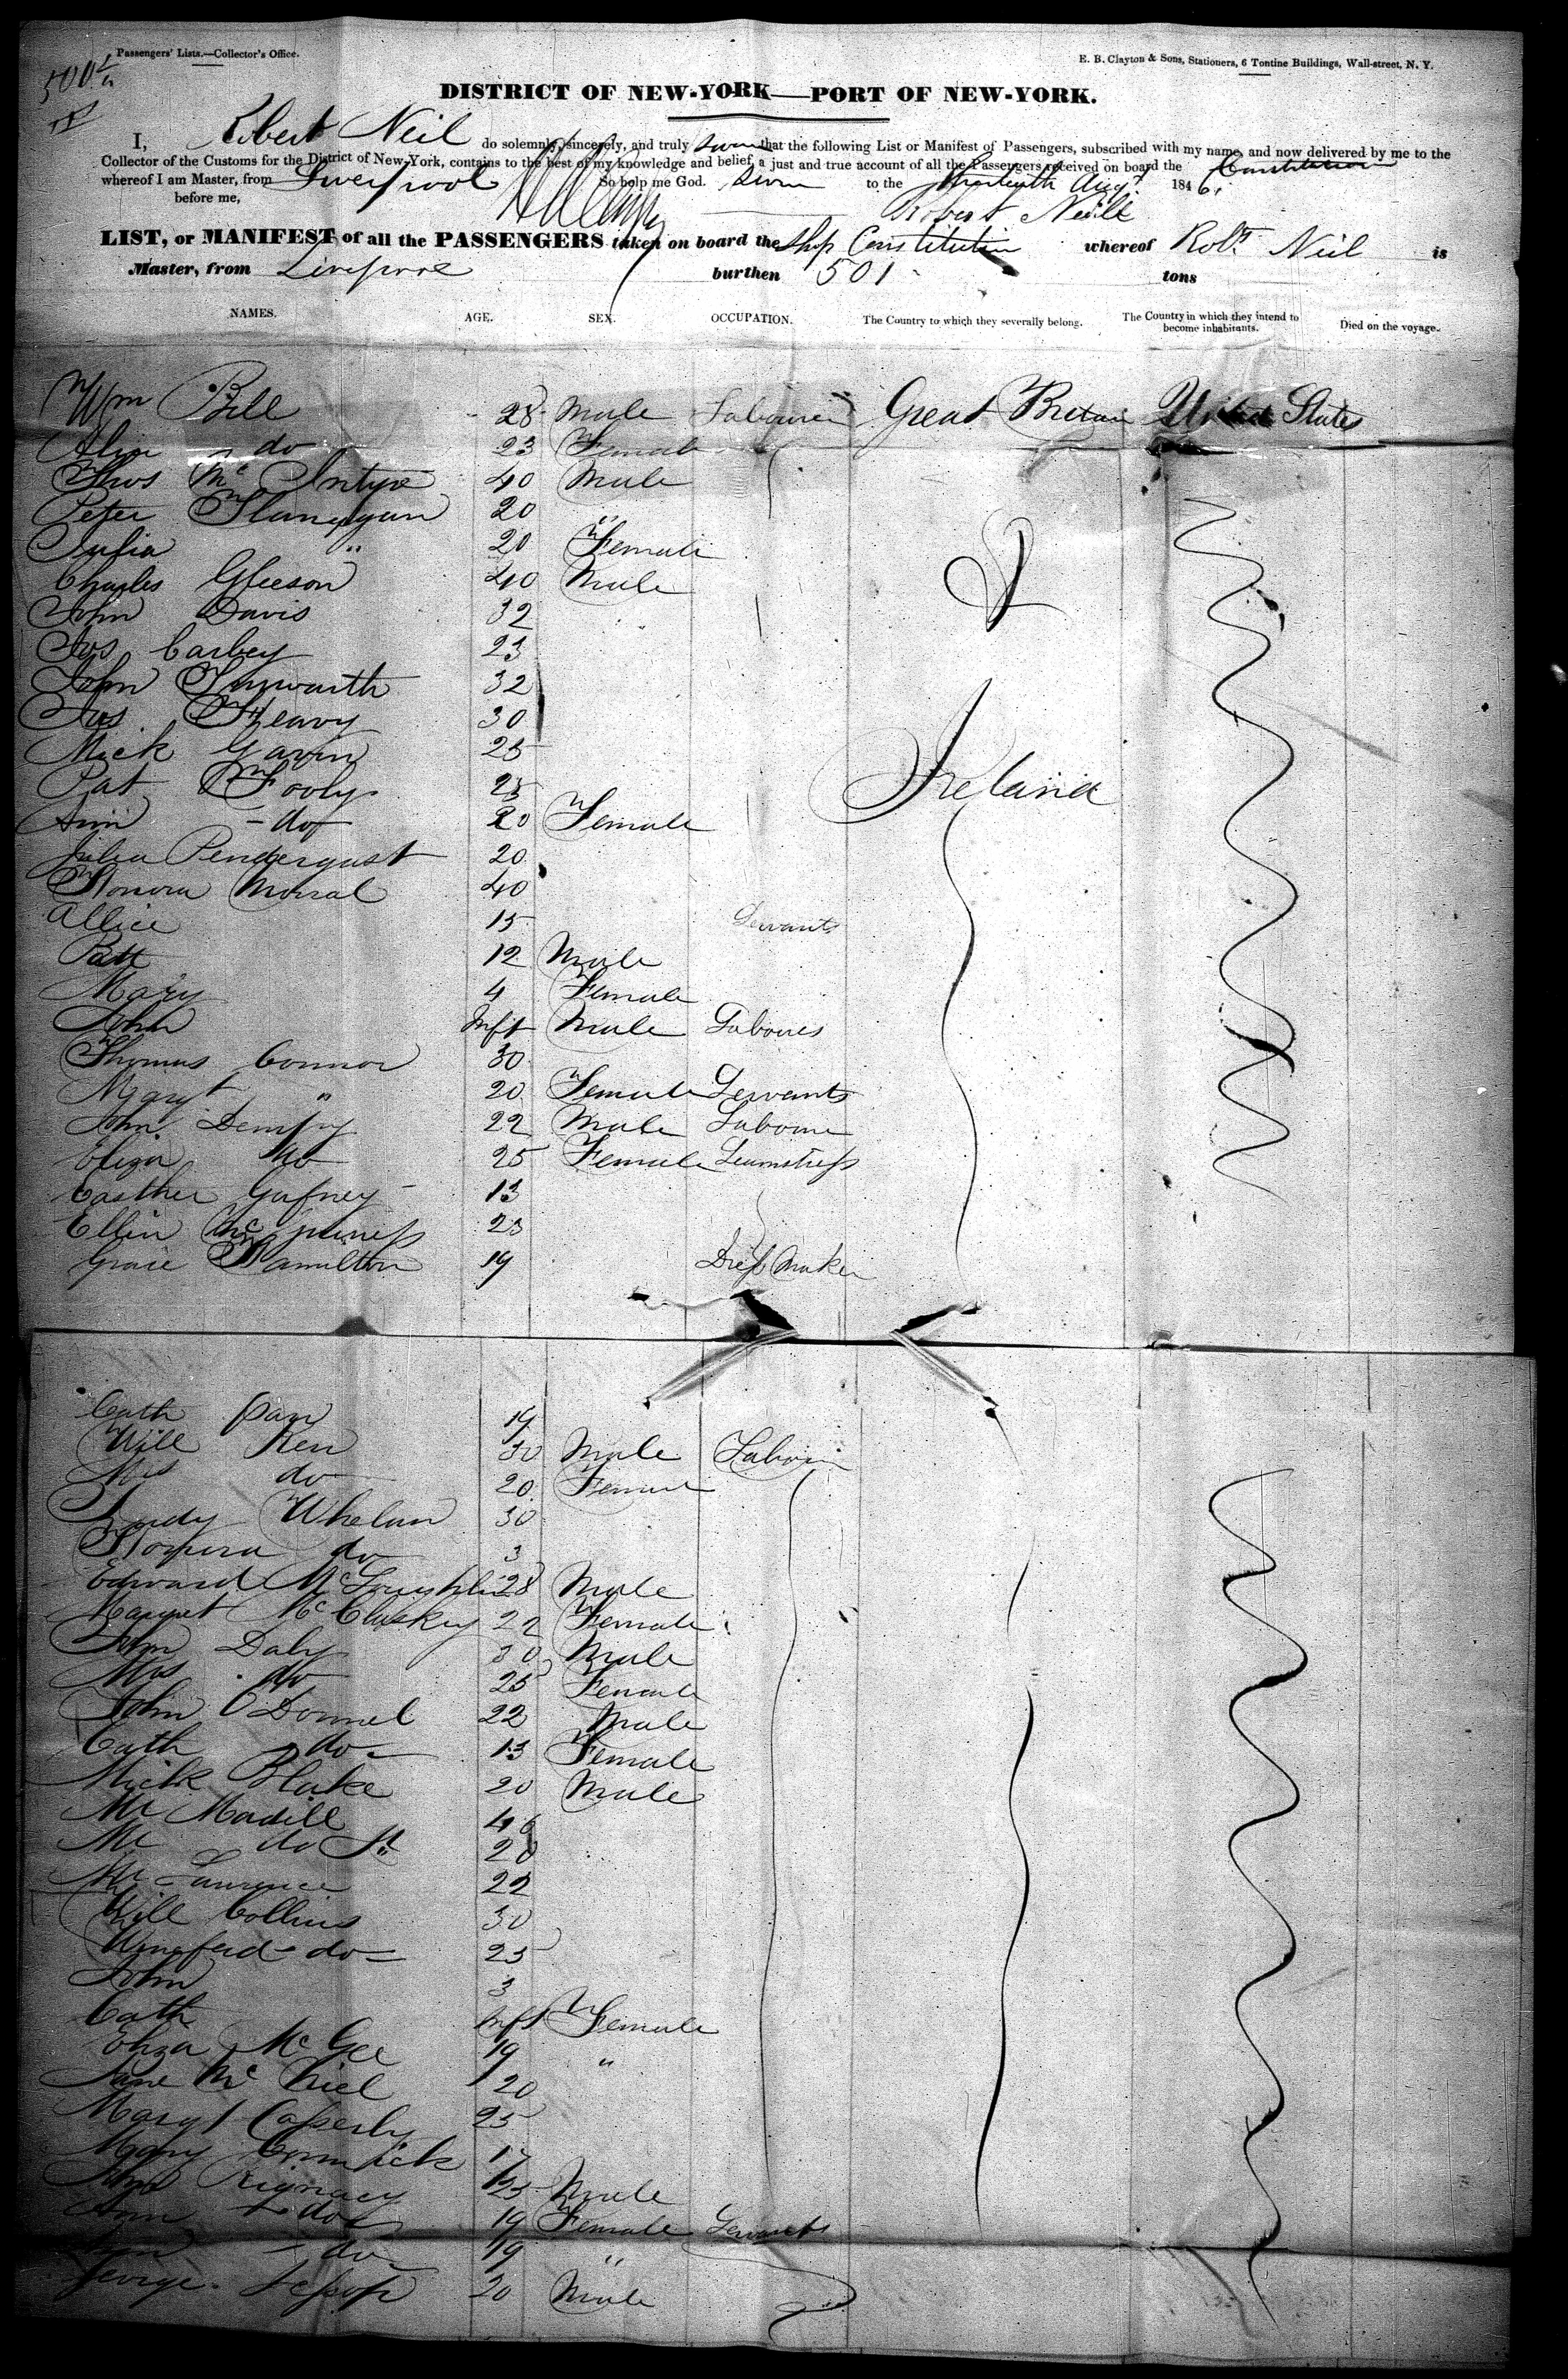 Passengers' Lists.—Collector's Office.
E. B. Clayton & Sons, Stationers, 6 Tontine Buildings, Wall-street, N. Y.
DISTRICT OF NEW-YORK—PORT OF NEW-YORK.
I, Robert Neil do solemnly, sincerely, and truly swear that the following List or Manifest of Passengers, subscribed with my name, and now delivered by me to the
Collector of the Customs for the District of New-York, contains to the best of my knowledge and belief, a just and true account of all the Passengers received on board the Constitution
whereof I am Master, from Liverpool So help me God. Sworn to the Augt 1846.
before me, Robert Neill
LIST, or MANIFEST of all the PASSENGERS taken on board the Ship Constitution whereof Robt. Neil is
Master, from Liverpool burthen 501 tons
NAMES. AGE. SEX. OCCUPATION. The Country to which they severally belong. The Country in which they intend to become inhabitants. Died on the voyage.
Wm Bell 28 Male Labourer Great Britain United States
do 23 Female
Thos McIntyre 40 Male
Peter Flanagan 20 "
Julia " 20 Female
Charles Gleeson 40 Male
John Davis 32
Jos Carbey 23
John 32
Jas Heavy 30
Mick Gavin 25
Pat Fooly 25 Ireland
Ann do 20 Female
Julia Pendergast 20
Honora Morral 40
Allice 15 Servants
Patt 12 Male
Mary 4 Female
John Inft Male Laboures
Thomas Connor 30
Margt " 20 Female Servants
John Dempsy 22 Male Laboure
Eliza do 25 Female Seamstress
Easther Gafney 13
Ellin McGuiness 23
Grace Hamilton 19 Dress Maker
Cath 19
Will Ken 30 Male Labourer
Mrs do 20 Female
Whelan 30
Honora do 3
Edward McLoughlin 28 Male
Margret McCluskey 22 Female
John Daly 30 Male
Mrs do 25 Female
John O Donnel 22 Male
Cath do 13 Female
Mick Blake 20 Male
Mr Madill 46
Mr do 20
Mr Laurence 22
Will Collins 30
do 25
John 3
Cath Inft Female
Eliza McGee 19 "
Jane McNiel 20
Margt Casserly 25
Mary Cormick 17
25 Male
Ann do 19 Female Servants
do 19 "
George Jessop 20 Male